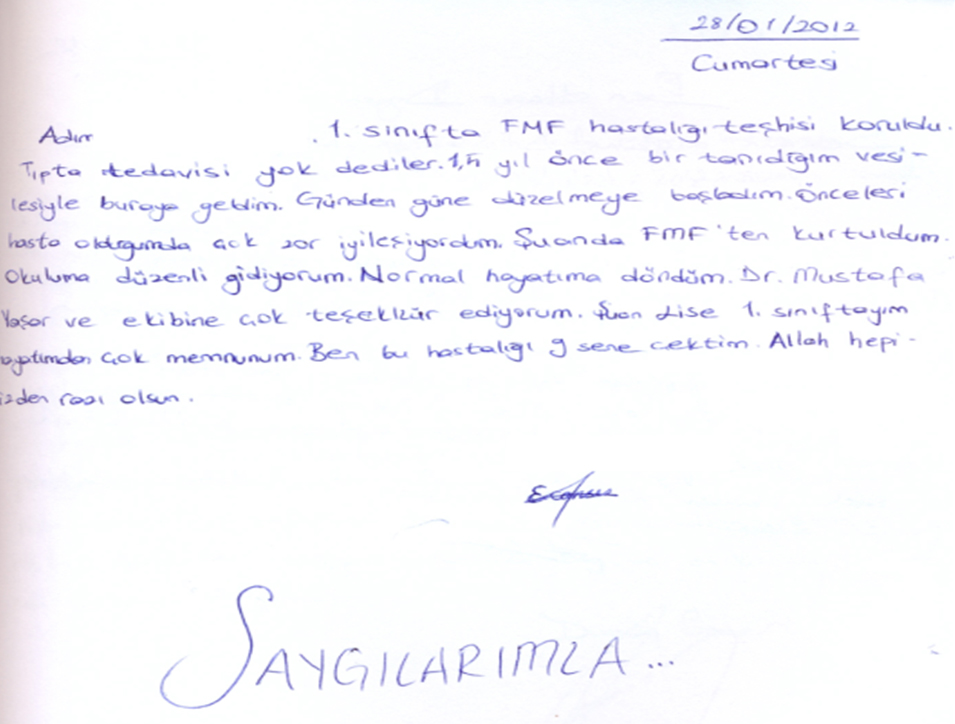 28/01/2012
Cumartesi
Adım . 1. sınıfta FMF hastalığı teşhisi konuldu.
Tıpta tedavisi yok dediler. 1,5 yıl önce bir tanıdığım vesi-
lesiyle buraya geldim. Günden güne düzelmeye başladım. Önceleri
hasta olduğumda çok zor iyileşiyordum. Şuanda FMF'ten kurtuldum.
Okuluma düzenli gidiyorum. Normal hayatıma döndüm. Dr. Mustafa
Yaşar ve ekibine çok teşekkür ediyorum. Şuan Lise 1. sınıftayım
ayatımdan çok memnunum. Ben bu hastalığı 9 sene çektim. Allah hepi-
izden razı olsun.
SAYGILARIMLA...